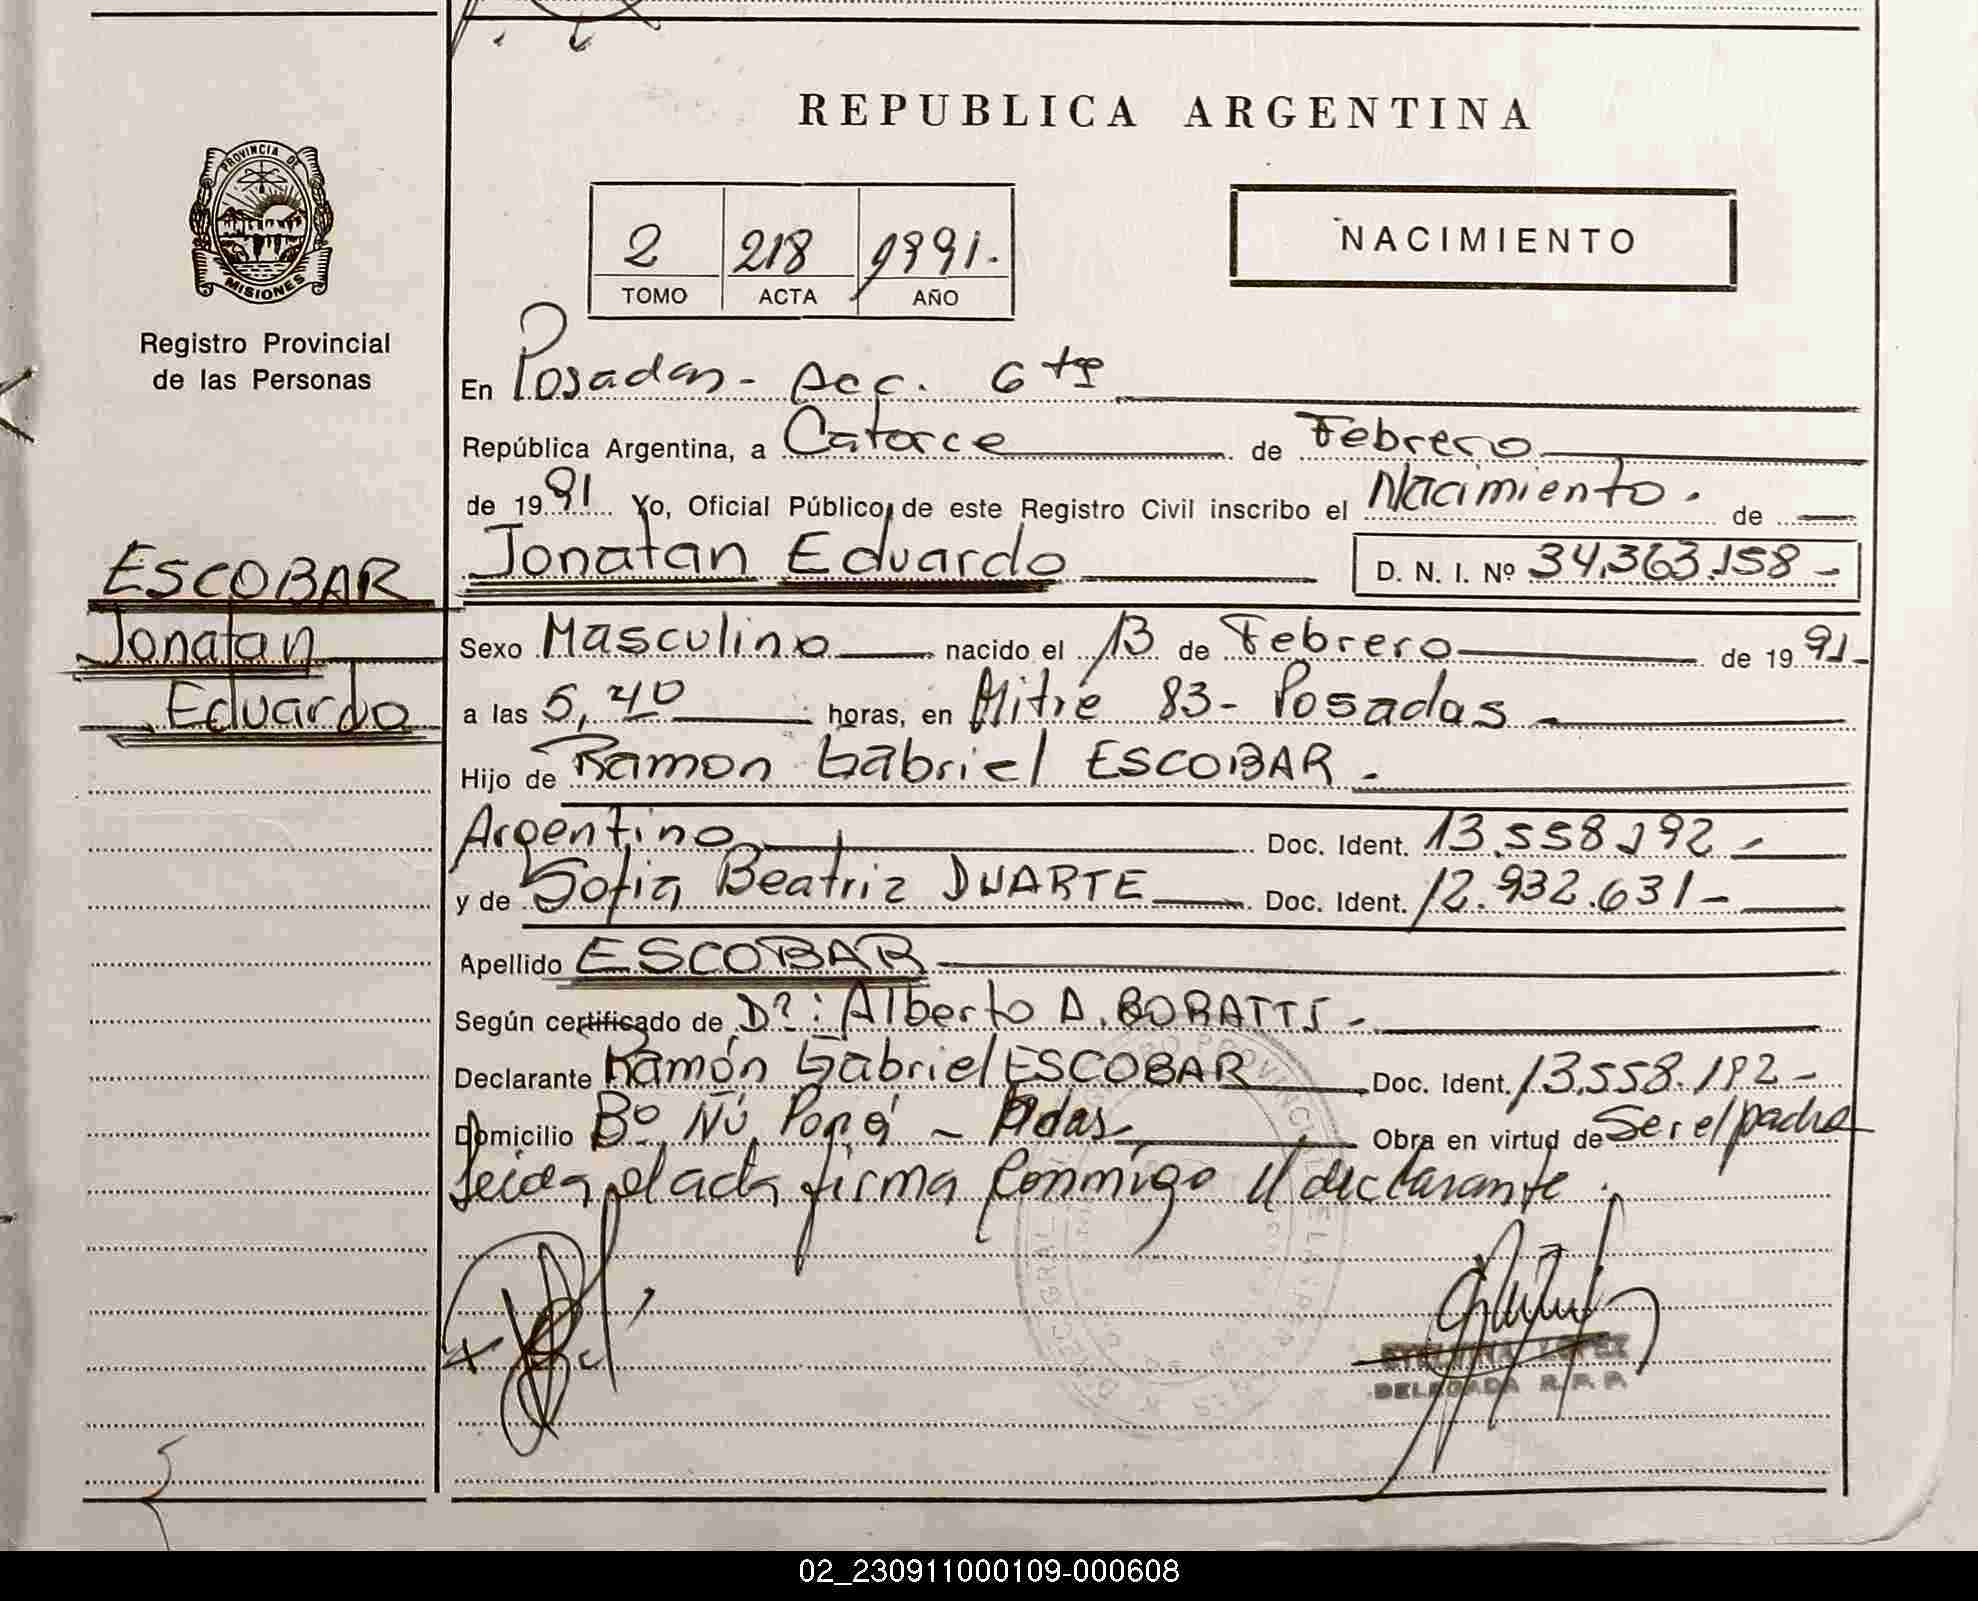 REPUBLICA ARGENTINA
PROVINCIA DE
MISIONES
Registro Provincial
de las Personas
2 218 1991.
TOMO ACTA AÑO
NACIMIENTO
En Posadas - Sec. 6ta
República Argentina, a Catorce de Febrero
de 1991 Yo, Oficial Público, de este Registro Civil inscribo el Nacimiento. de
ESCOBAR
Jonatan
Eduardo
Jonatan Eduardo D. N. I. Nº 34.363.158 -
Sexo Masculino nacido el 13 de Febrero de 1991-
a las 5,40 horas, en Mitre 83 - Posadas -
Hijo de Ramon Gabriel ESCOBAR -
Argentino Doc. Ident. 13.558.192 -
y de Sofia Beatriz DUARTE Doc. Ident. 12.932.631 -
Apellido ESCOBAR
Según certificado de Dr: Alberto A. -
Declarante Ramón Gabriel ESCOBAR Doc. Ident. 13.558.192 -
Domicilio Bº Ñú Porá - Pdas. Obra en virtud de Ser el padre
Leida el acta firma conmigo el declarante.
LOPEZ
DELEGADA R.P.P.
02_230911000109-000608